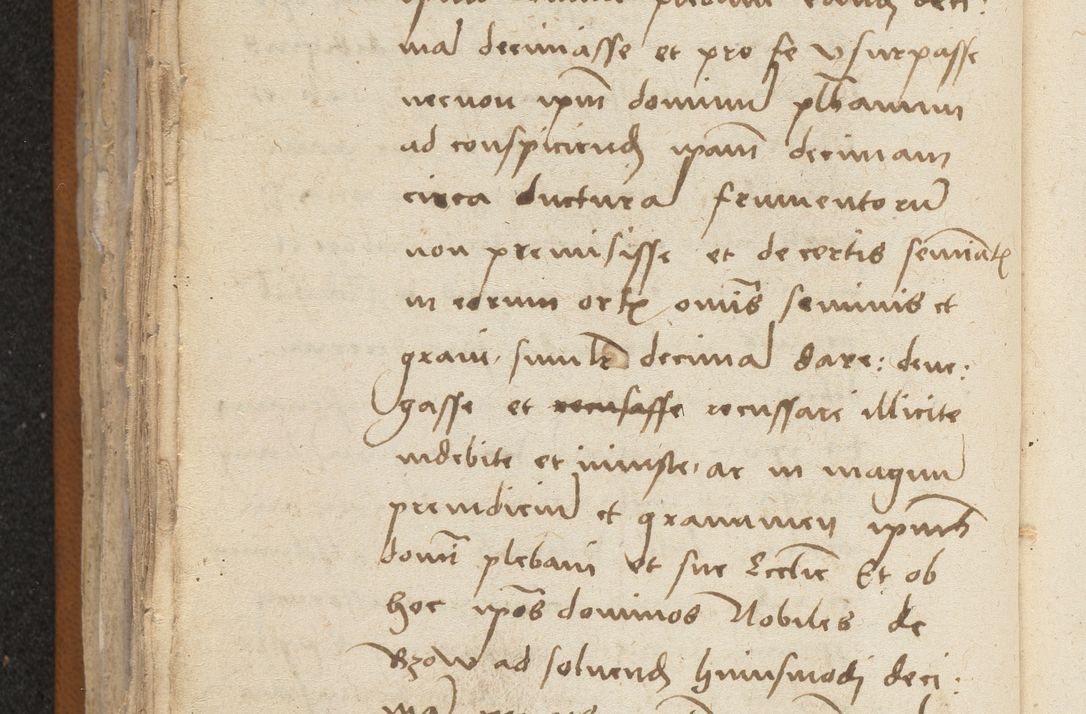 ma decimasse et pro se vsurpasse
necnon ipm dominu plbanum
ad conspiciend ipam decimam
circa ductura frumentoru
non premisisse et de certis seminat
in eorum ort omis seminis et
grani similr decima dare: dene:
gasse et recusasse recussare illicite
indebite et iniuste, ac in magnu
preiudiciu et grauamen ipius
domi plebani et sue Ecclie Et ob
hoc ipos dominos Nobiles de
Rzow ad soluend huiusmodi deci: